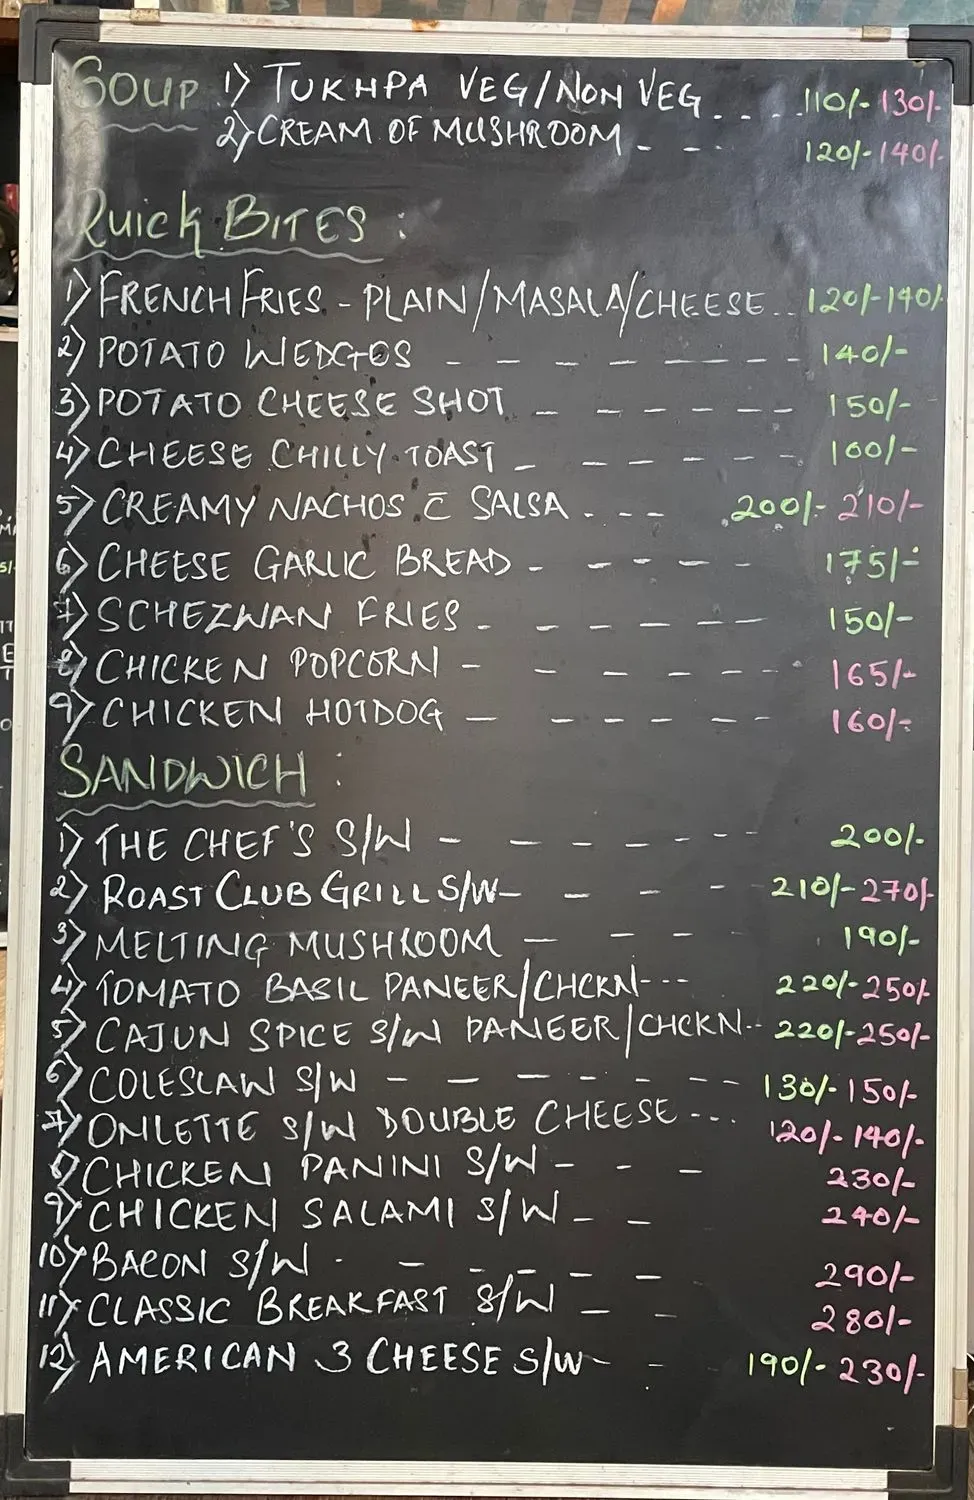 SOUP 1) TUKHPA VEG/NON VEG .... 110/- 130/-
2) CREAM OF MUSHROOM - - - 120/- 140/-
Quick BITES :
1) FRENCH FRIES - PLAIN/MASALA/CHEESE .. 120/- 140/-
2) POTATO WEDGES - - - - - - - - 140/-
3) POTATO CHEESE SHOT - - - - - - 150/-
4) CHEESE CHILLY TOAST - - - - - - 100/-
5) CREAMY NACHOS C̅ SALSA - - - - 200/- 210/-
6) CHEESE GARLIC BREAD - - - - - 175/-
7) SCHEZWAN FRIES - - - - - - 150/-
8) CHICKEN POPCORN - - - - - - 165/-
9) CHICKEN HOTDOG - - - - - - 160/-
SANDWICH :
1) THE CHEF'S S/W - - - - - - - 200/-
2) ROAST CLUB GRILL S/W - - - - 210/- 270/-
3) MELTING MUSHROOM - - - - 190/-
4) TOMATO BASIL PANEER/CHCKN - - - 220/- 250/-
5) CAJUN SPICE S/W PANEER/CHCKN - - 220/- 250/-
6) COLESLAW S/W - - - - - - - - 130/- 150/-
7) OMLETTE S/W DOUBLE CHEESE - - - 120/- 140/-
8) CHICKEN PANINI S/W - - - 230/-
9) CHICKEN SALAMI S/W - - 240/-
10) BACON S/W - - - - - - 290/-
11) CLASSIC BREAKFAST S/W - - 280/-
12) AMERICAN 3 CHEESE S/W - - - 190/- 230/-